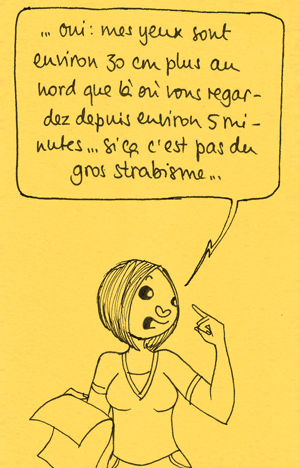 ... oui : mes yeux sont
environ 30 cm plus au
nord que là où vous regar-
dez depuis environ 5 mi-
nutes... si ça c'est pas du
gros strabisme...